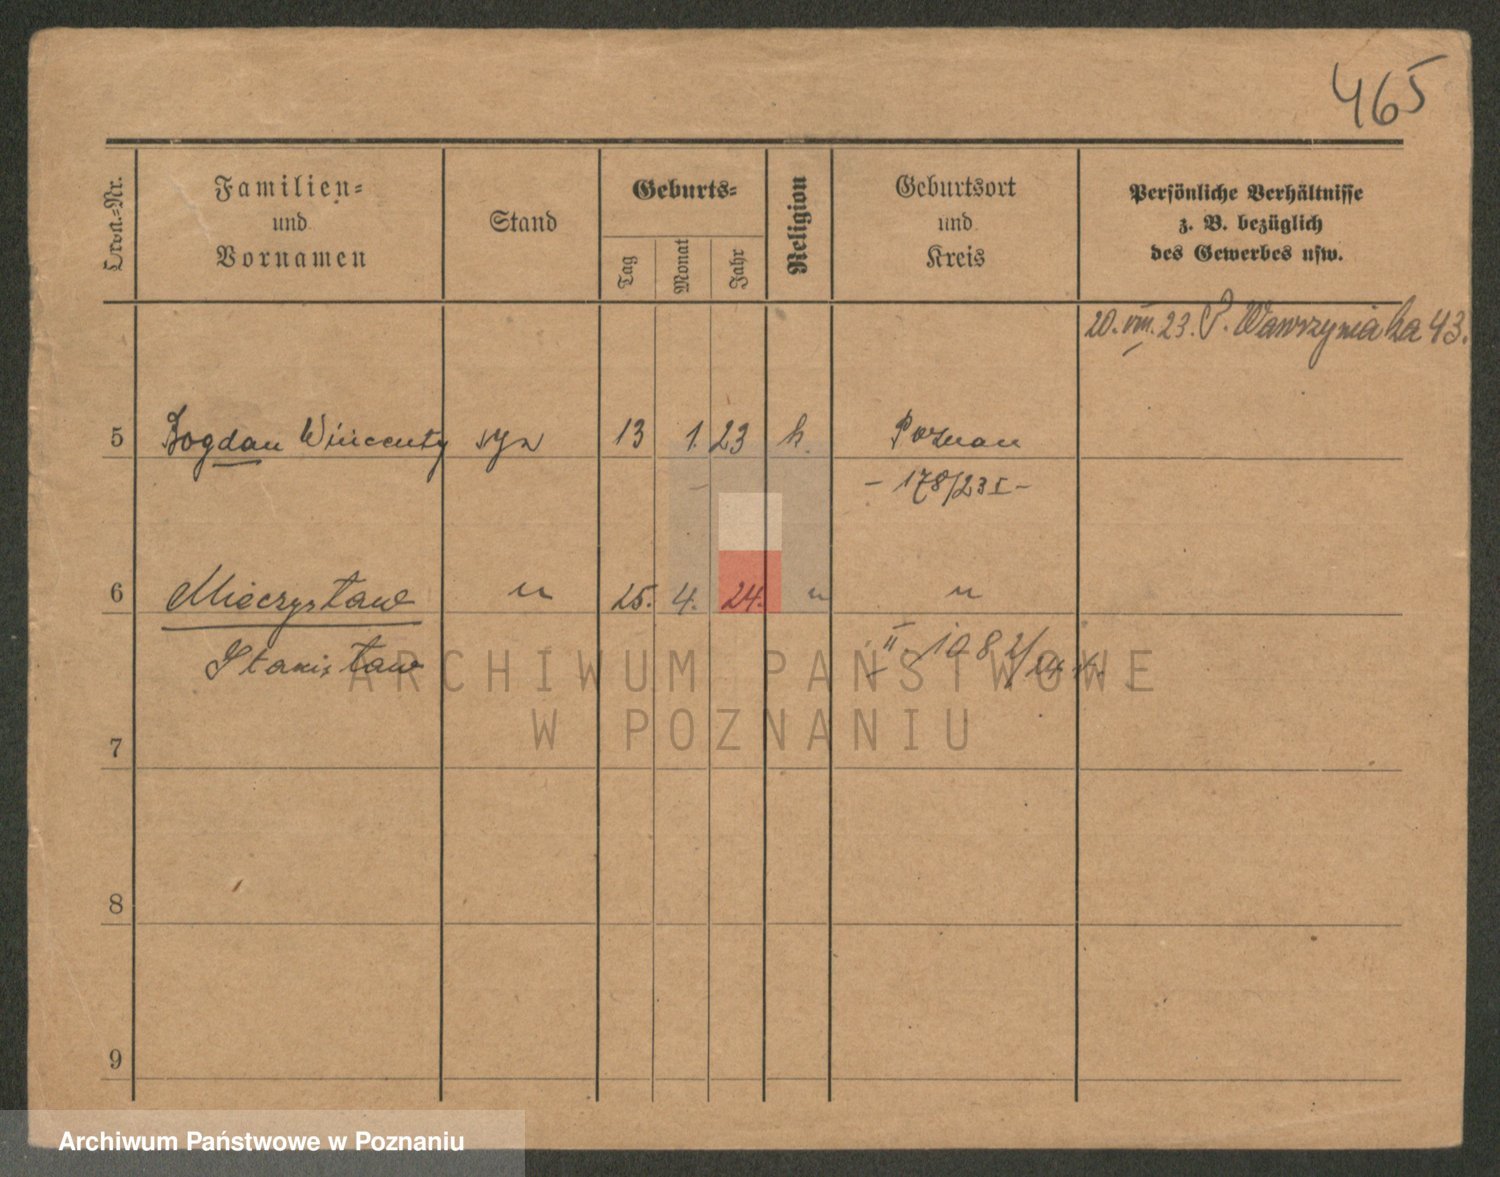 465
Lfde.-Nr.
Familien-
und
Vornamen
Stand
Geburts-
Tag
Monat
Jahr
Religion
Geburtsort
und
Kreis
Persönliche Verhältnisse
z. B. bezüglich
des Gewerbes usw.
20. VIII. 23. P. Wawrzyniaka 43.
5 Bogdan Wincenty syn 13 1. 23 k. Poznan
- 178/23 I -
6 Mieczysław " 25. 4. 24. " "
Stanisław II 1082/24
ARCHIWUM PAŃSTWOWE
W POZNANIU
7
8
9
Archiwum Państwowe w Poznaniu